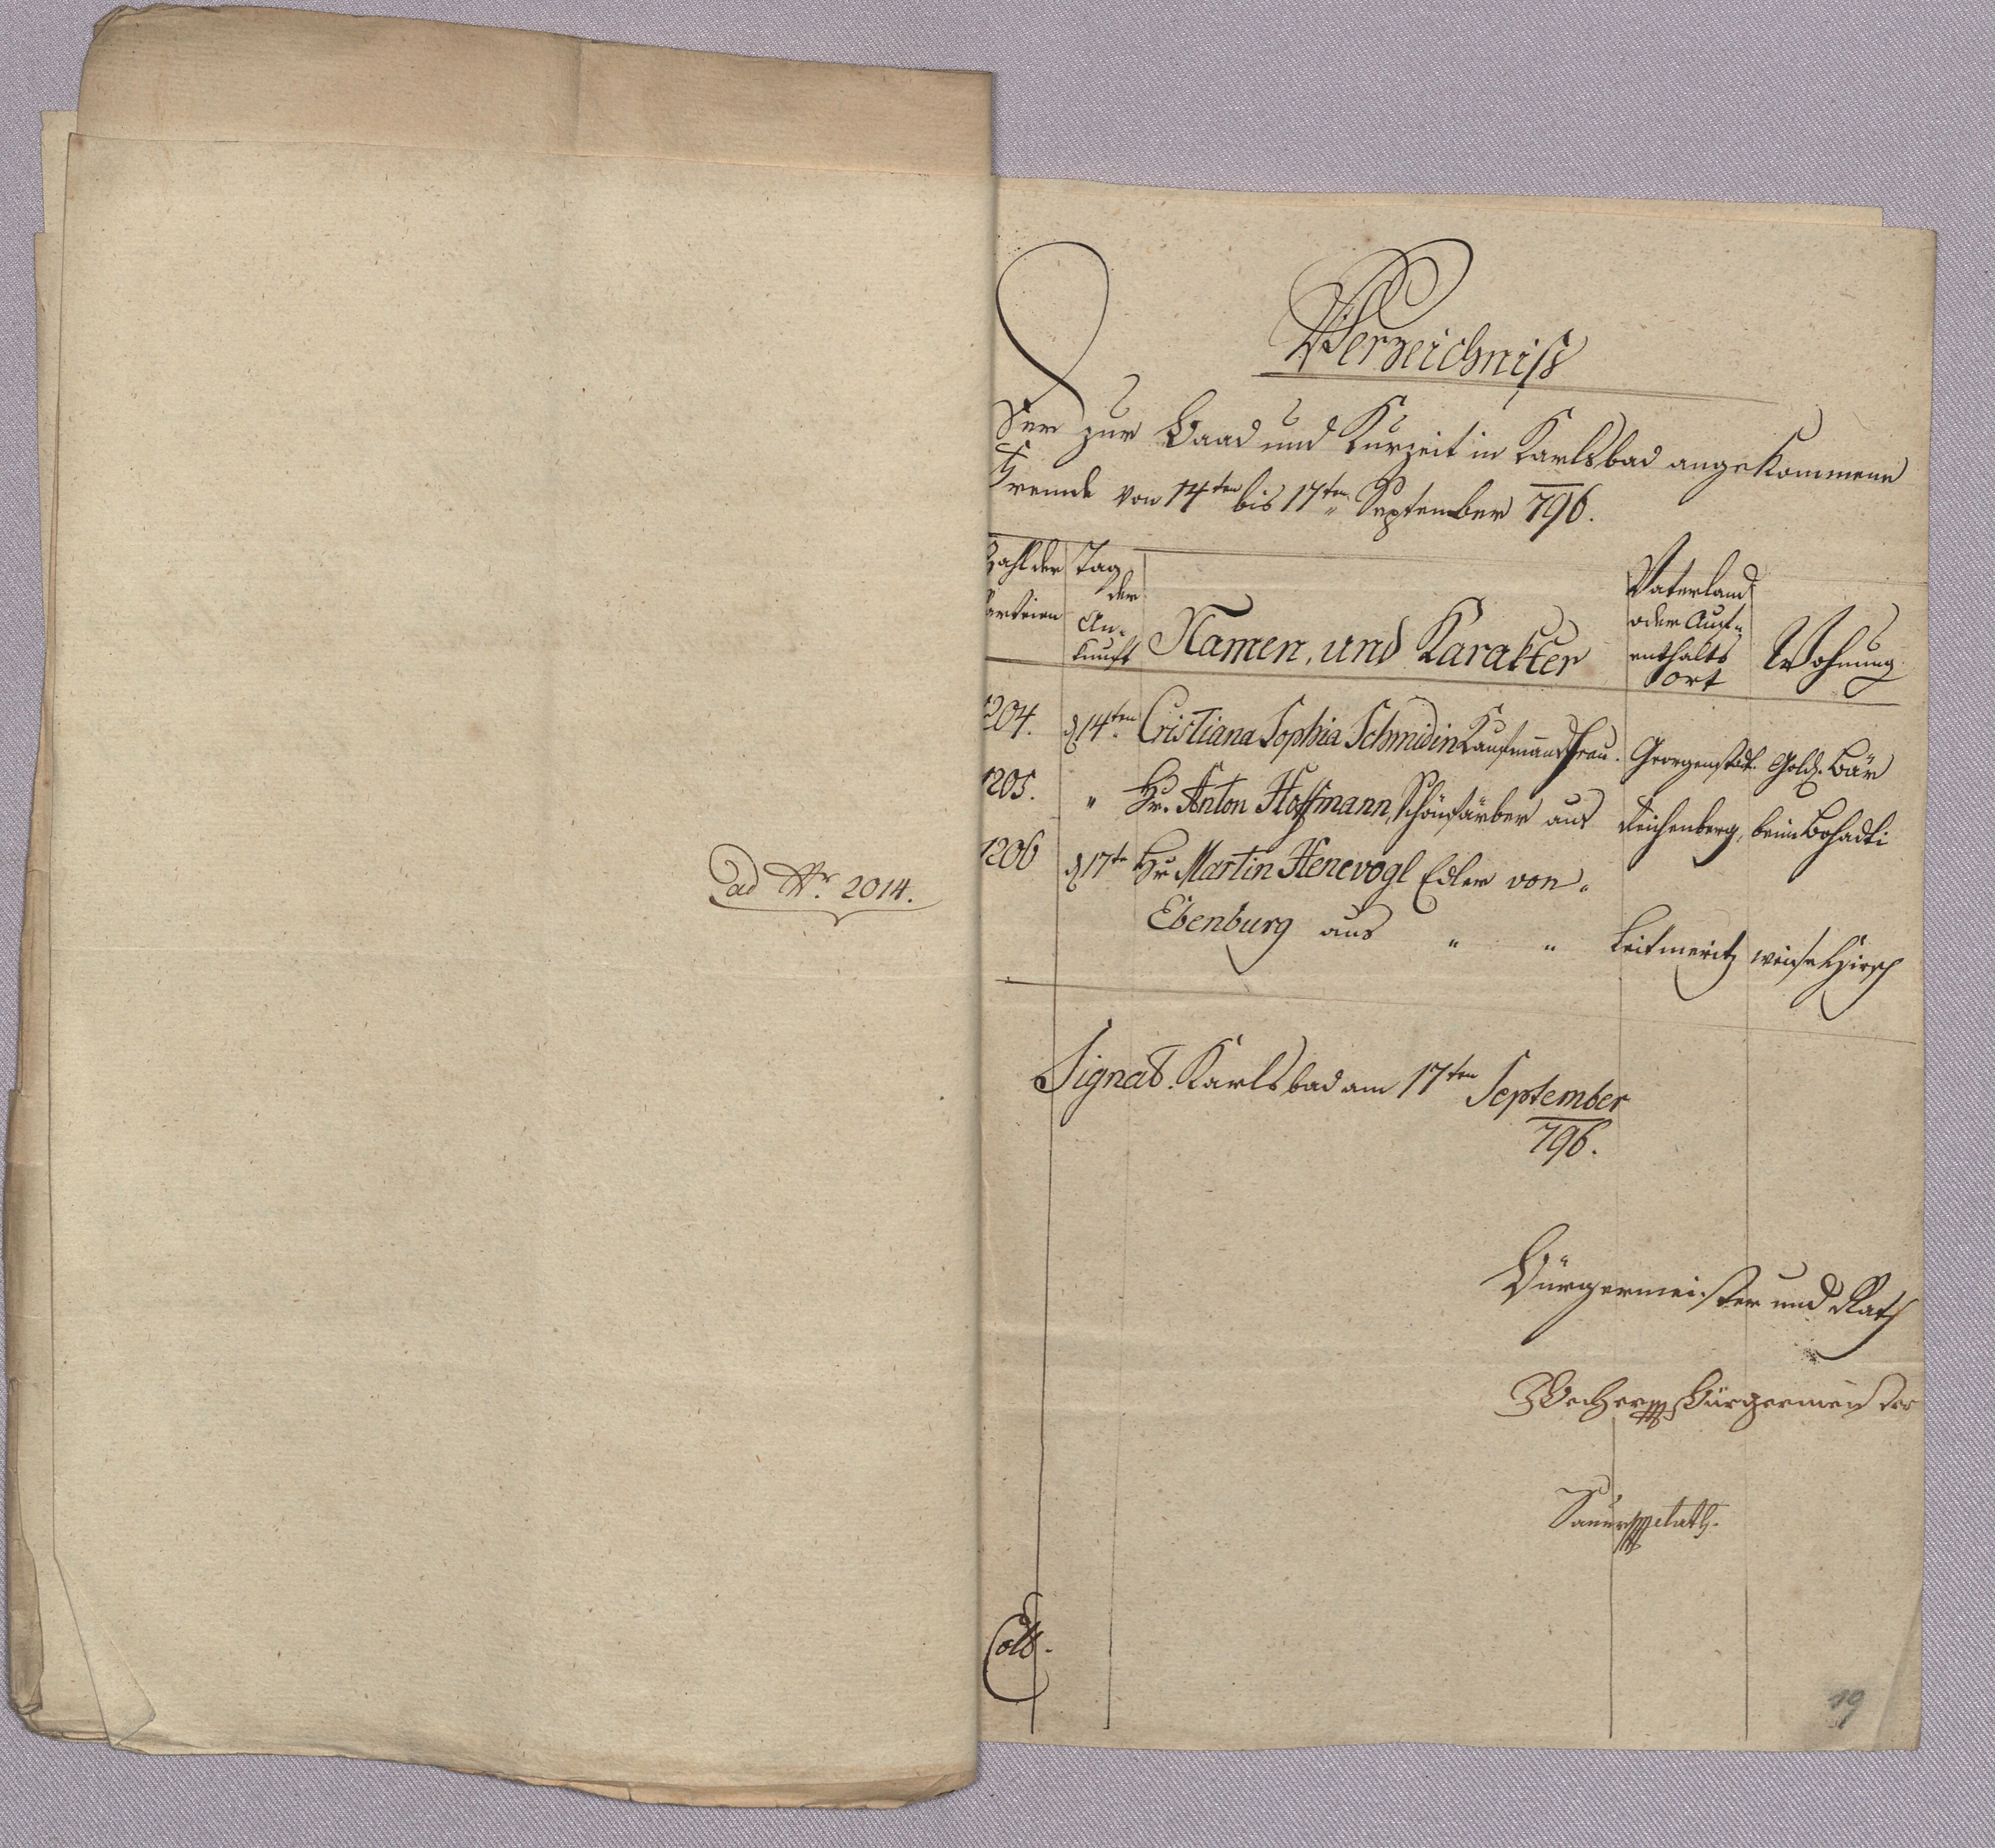 ad Nr. 2014.
Verzeichniß
Der zur Baad und Kurzeit in Karlsbad angekommene
Fremde von 14ten bis 17ten September 796.
Zahl der Parteien
Tag der An-kunft
Namen, und Karakter
Vaterland oder Aufentshalts ort
Wohnung
1204. d 14ten Cristiana Sophia Schmidin Kaufmanns frau. Georgenstadt. Gold. Bär
1205. " Hr. Anton Hoffmann, Schönfärber aus Reichenberg, beim Bohadti
1206 d 17te Hr Martin Henevogl Edler von
Ebenburg aus " " Leitmeritz weise Hirsch
Signat. Karlsbad am 17ten September
796.
Bürgermeister und Rath
Bürgermeister
Rath.
19